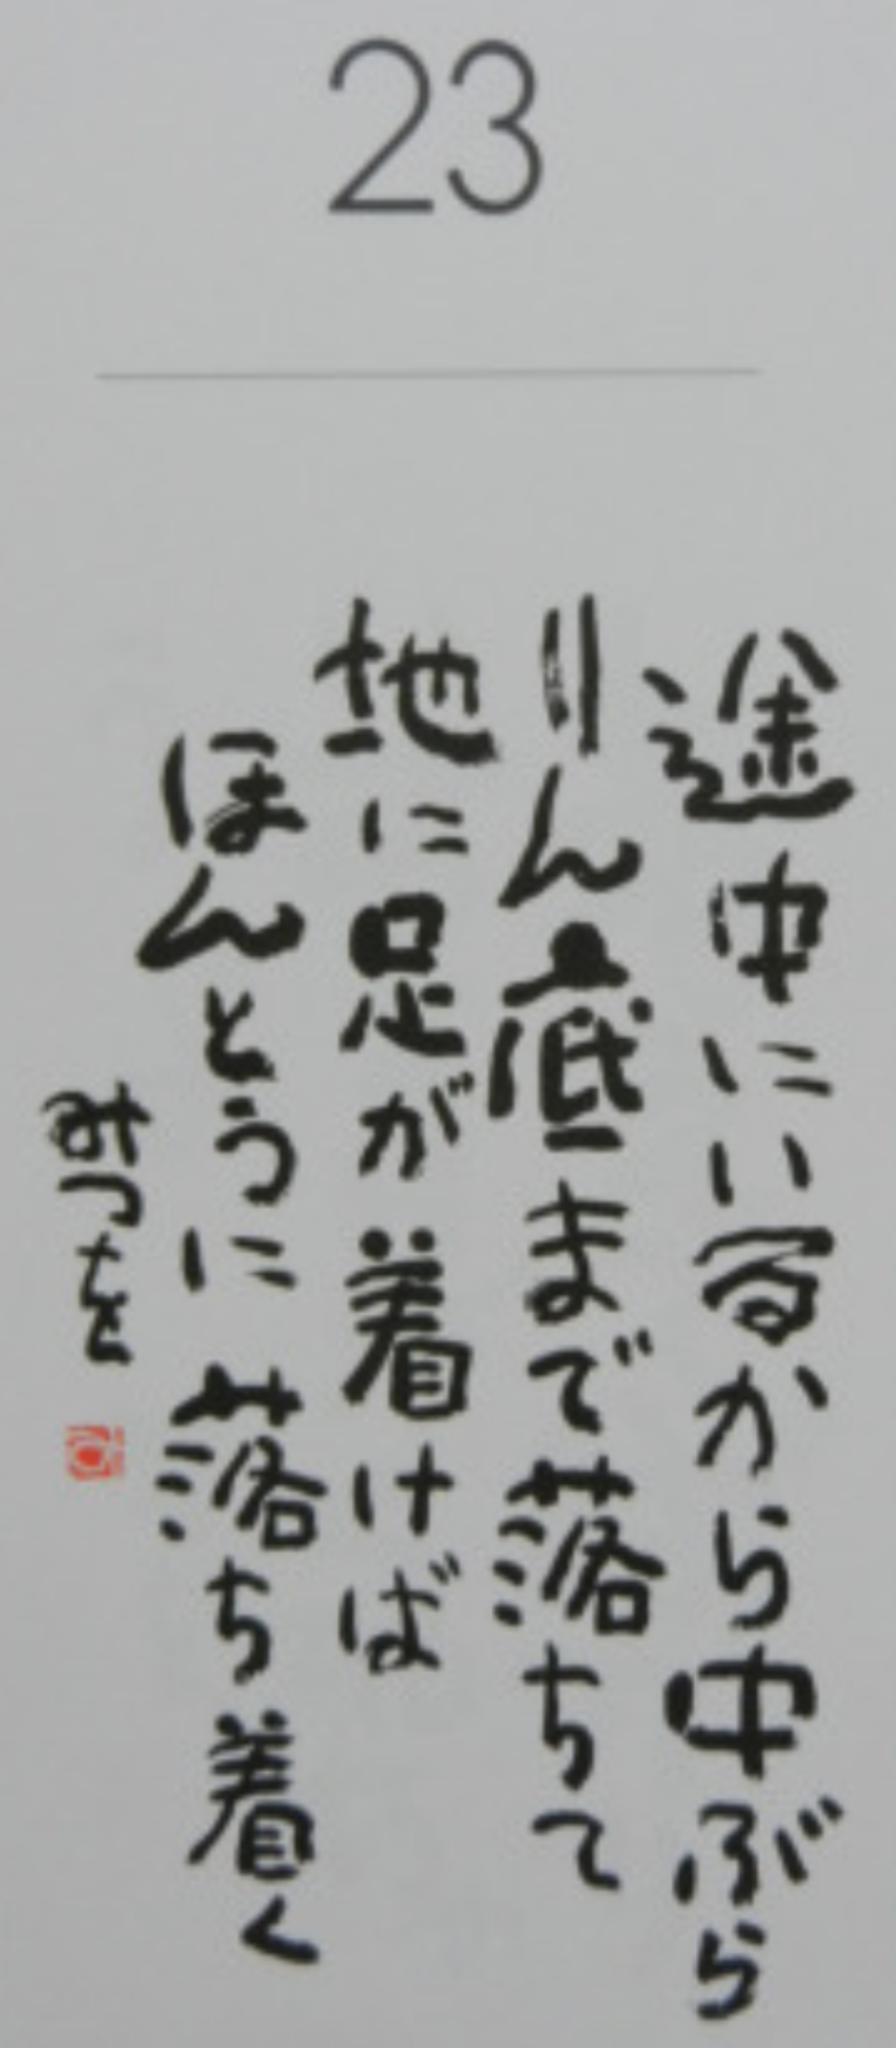 23
途中にいるから中ぶら
りん底まで落ちて
地に足が着けば
ほんとうに落ち着く
みつを